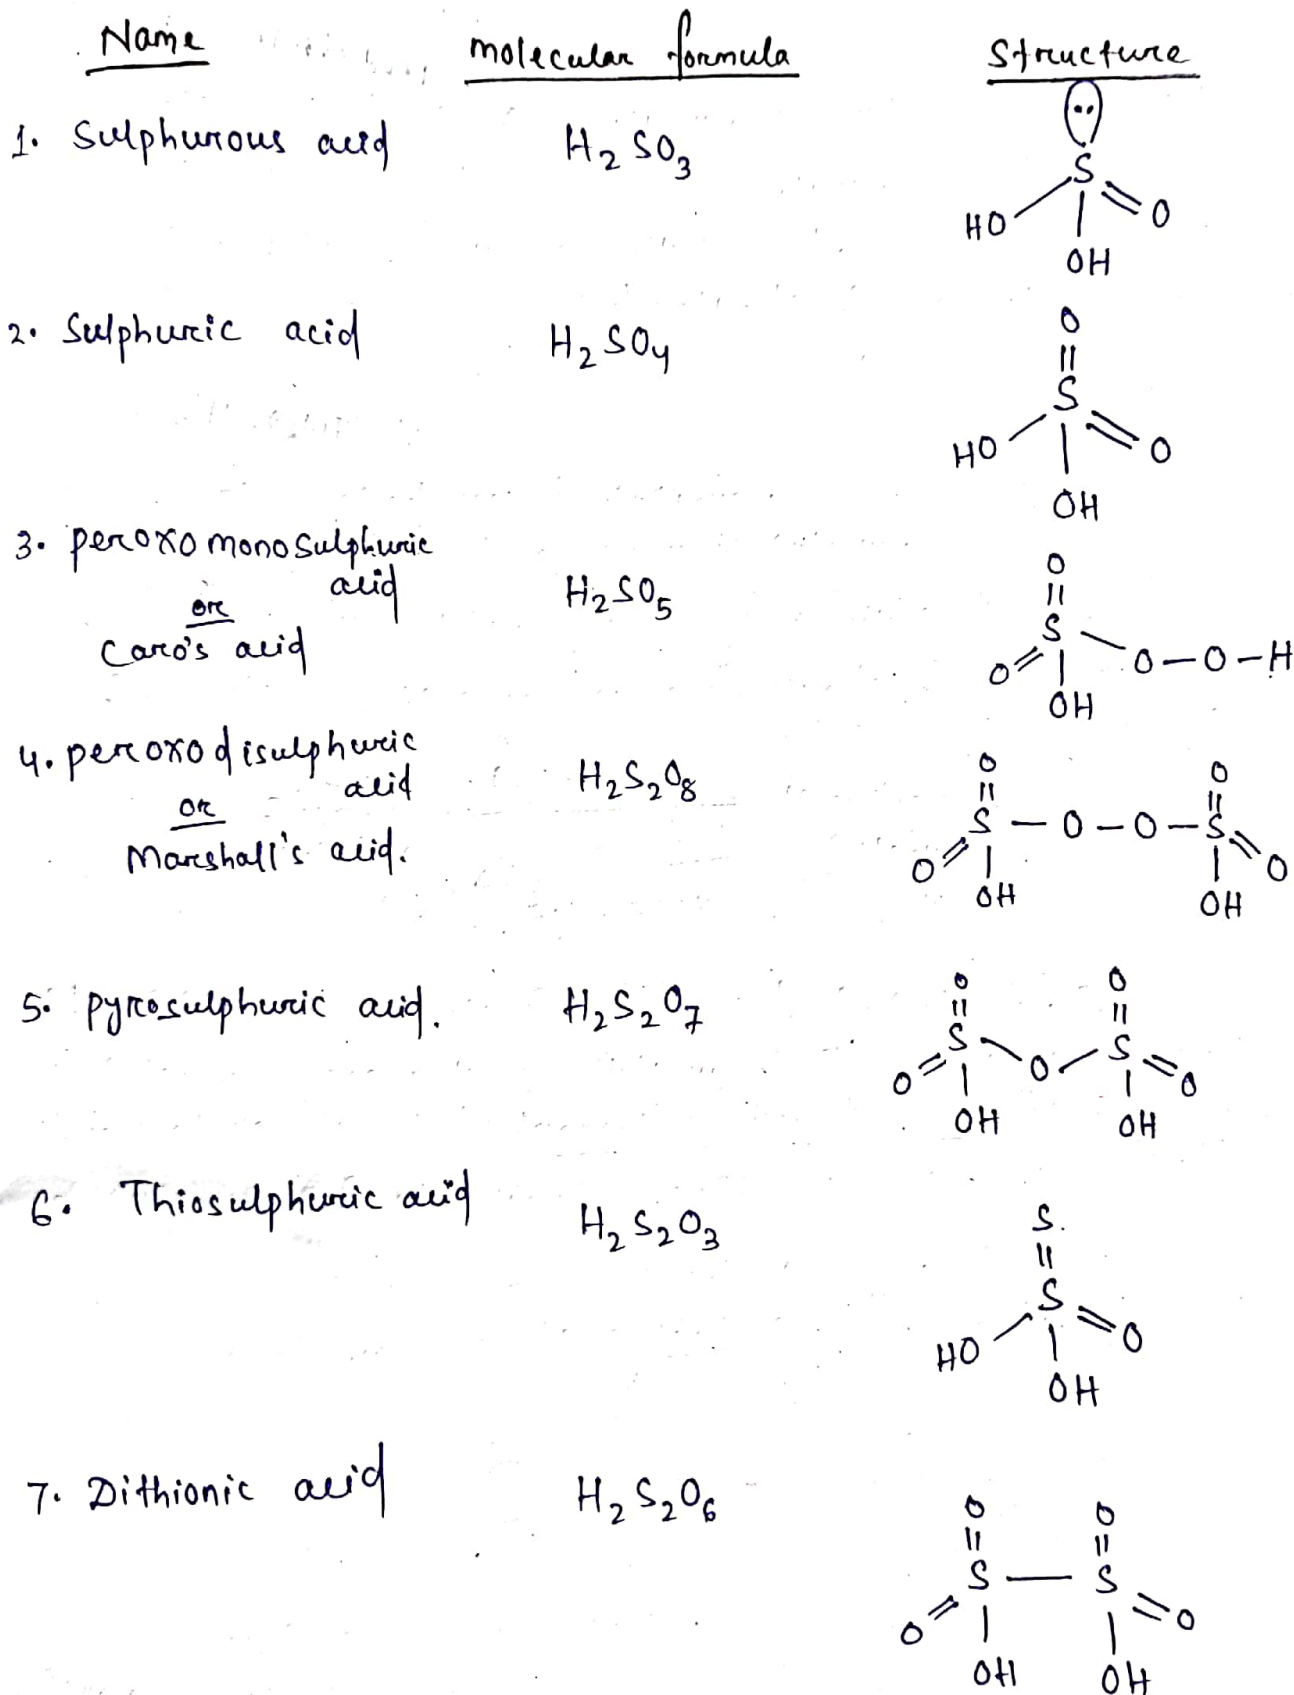 Name molecular formula Structure
1. Sulphurous acid H2SO3
S
HO O
OH
2. Sulphuric acid H2SO4
O
S
HO O
OH
3. peroxomonosulphuric
acid
or H2SO5
Caro's acid
O
S
O O-O-H
OH
4. peroxodisulphuric
acid H2S2O8
or
Marshall's acid.
O O
S-O-O-S
O O
OH OH
5. pyrosulphuric acid. H2S2O7
O O
S S
O O O
OH OH
6. Thiosulphuric acid H2S2O3
S
S
HO O
OH
7. Dithionic acid H2S2O6
O O
S-S
O O
OH OH